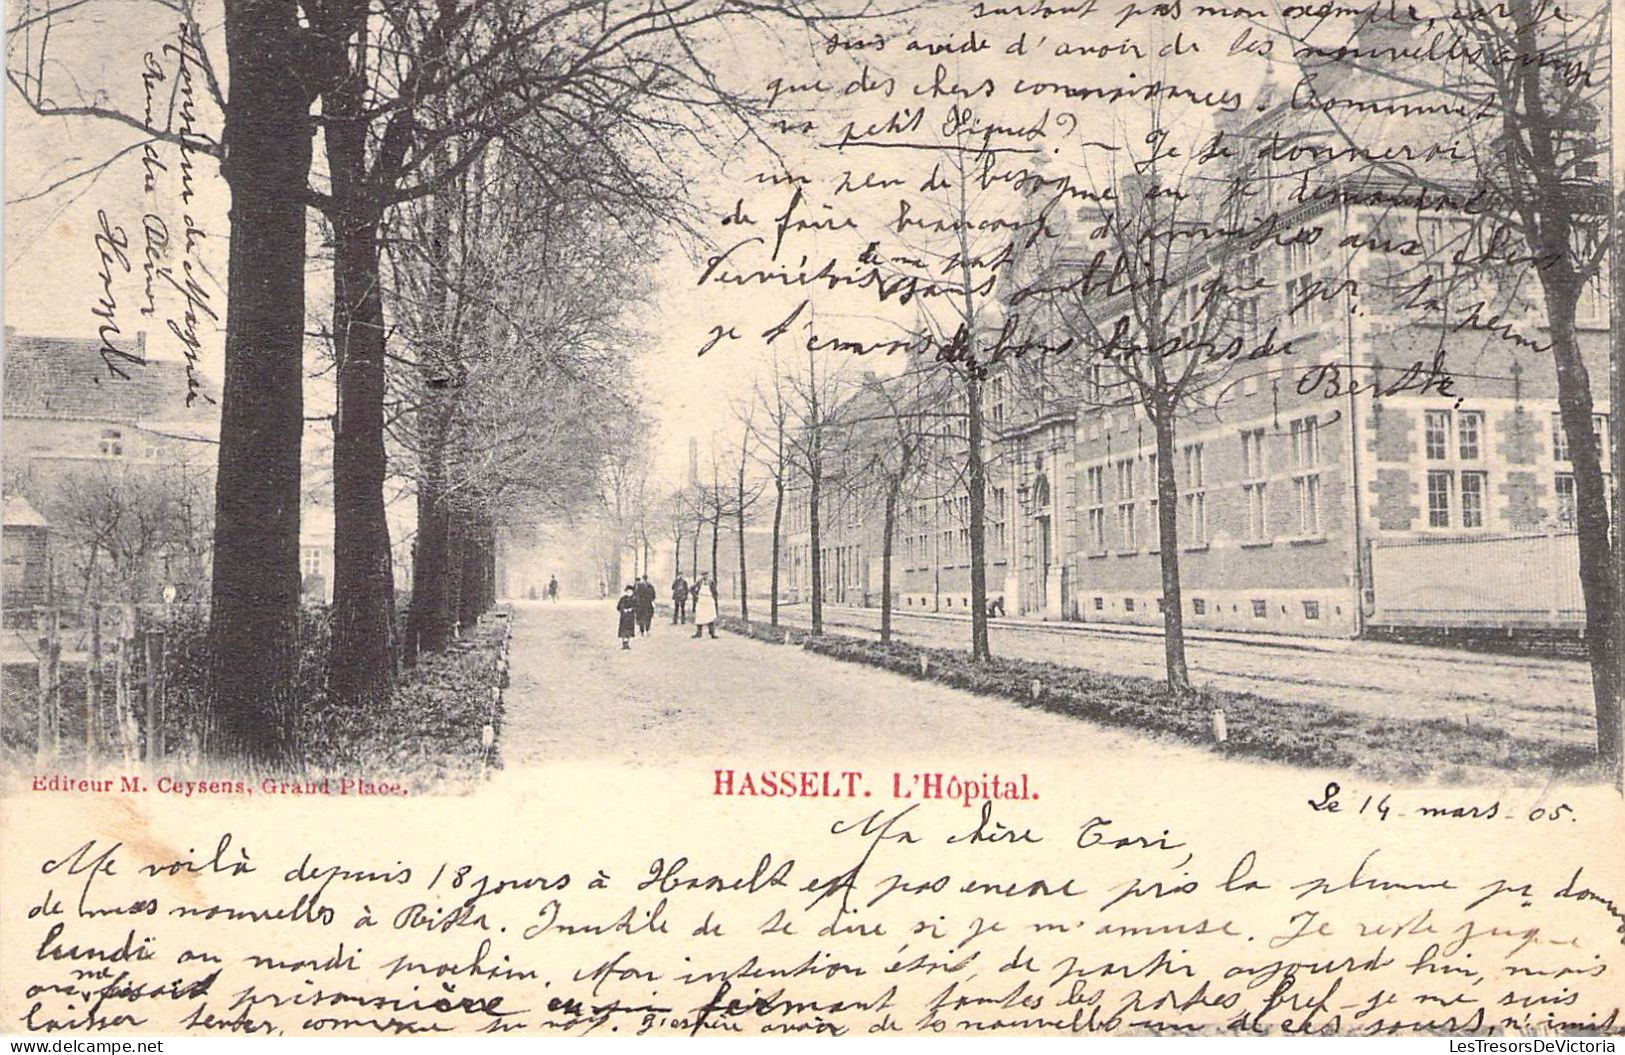 Editeur M. Ceysens, Grand Place.
HASSELT. L'Hôpital.
Le 14 mars - 05.
Ma chère Tori,
Me voilà depuis 18 jours à Hasselt et pas encore pris la plume pr donner
de mes nouvelles à Ritta. Inutile de te dire si je m'amuse. Je reste jusque
lundi ou mardi prochain. Mon intention était de partir aujourd'hui, mais
on me faisait prisonnière en fermant toutes les portes bref je me suis
laisser tenter, comme tu vois. J'espère avoir de tes nouvelles un de ces jours, n'imite
surtout pas mon exemple, car je
suis avide d'avoir de tes nouvelles ainsi
que des chers connaissances. Comment
va petit ? - Je te donnerai
un peu de besogne en te demandant
de faire beaucoup d'amitiés aux chers
Verviétois de ma part sans oublier que pr. ta peine
je t'envoie de bons baisers de
Berthe.
Monsieur de Magnée
Rue du Prieur
Herml.
LesTresorsDeVictoria